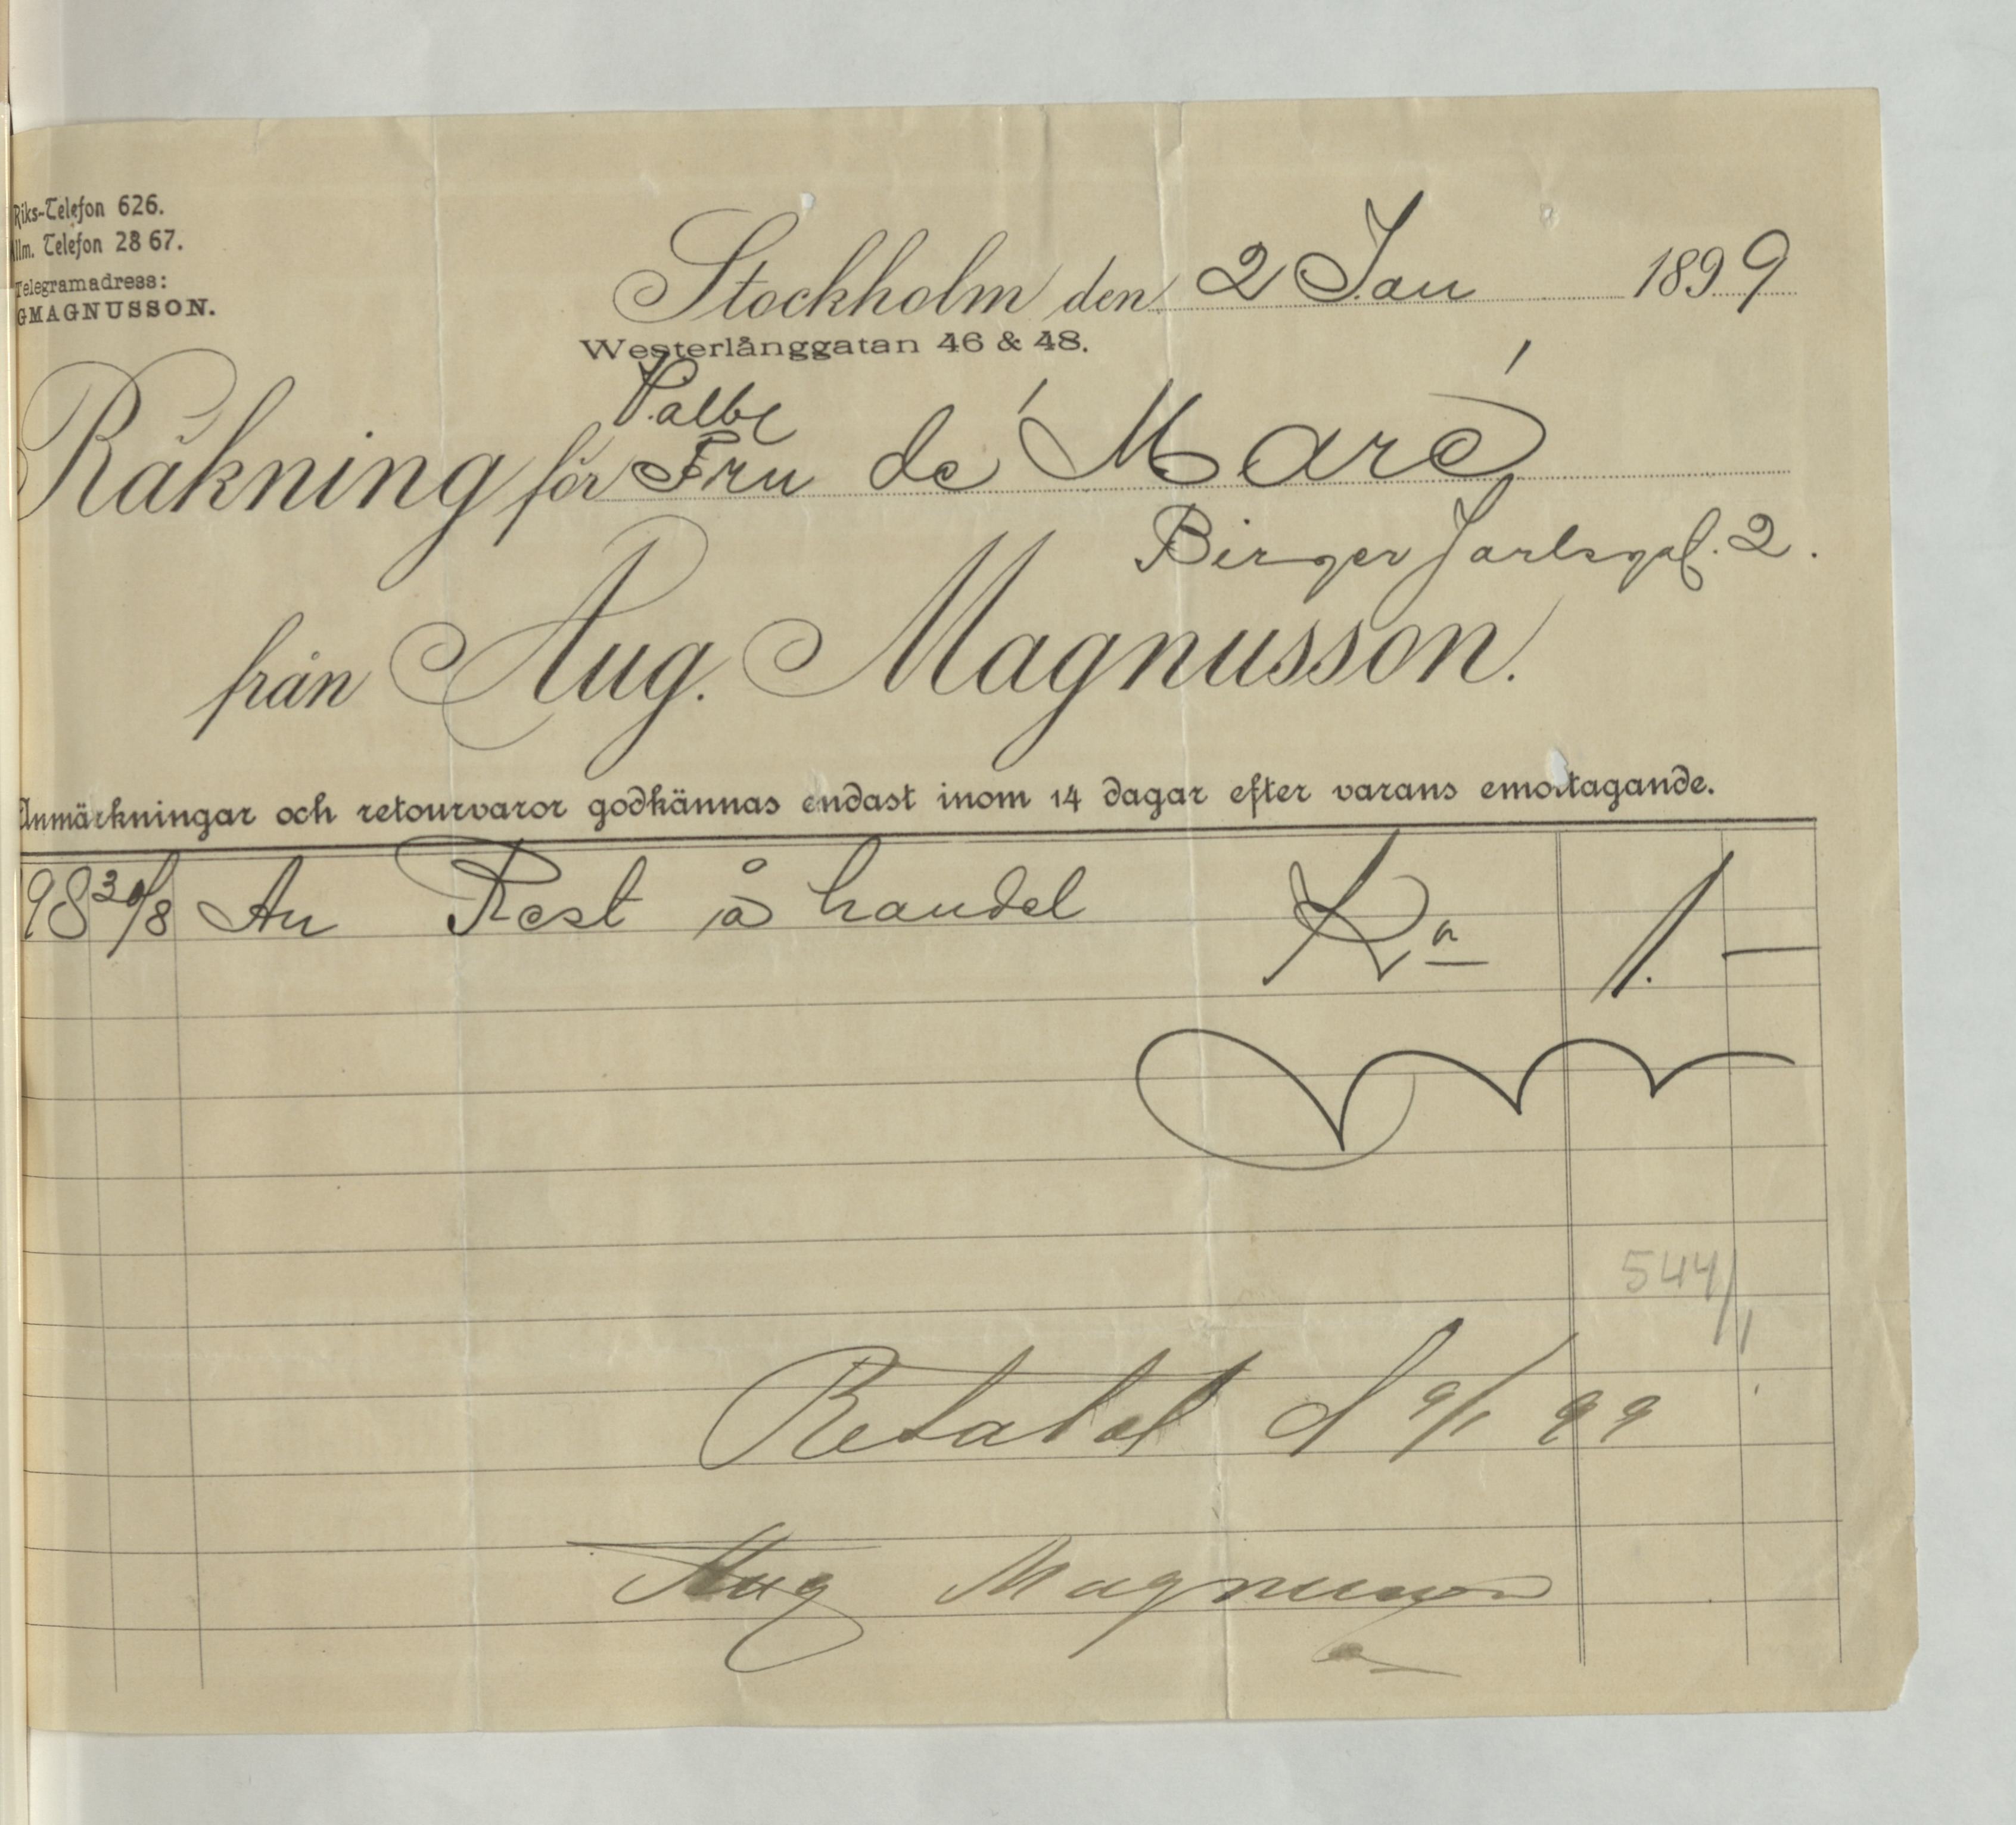 Riks-Telefon 626.
Allm. Telefon 28 67.
Telegramadress:
GMAGNUSSON.
Stockholm den 2 Jan 1899
Westerlånggatan 46 & 48.
Välbe
Räkning för Fru de Maré
Birger Jarlsgat. 2.
från Aug. Magnusson.
Anmärkningar och retourvaror godkännas endast inom 14 dagar efter varans emottagande.
98 30/8 An Rest å handel Kr 1. —
544/1
Betalat d 9/1 99
Aug Magnusson